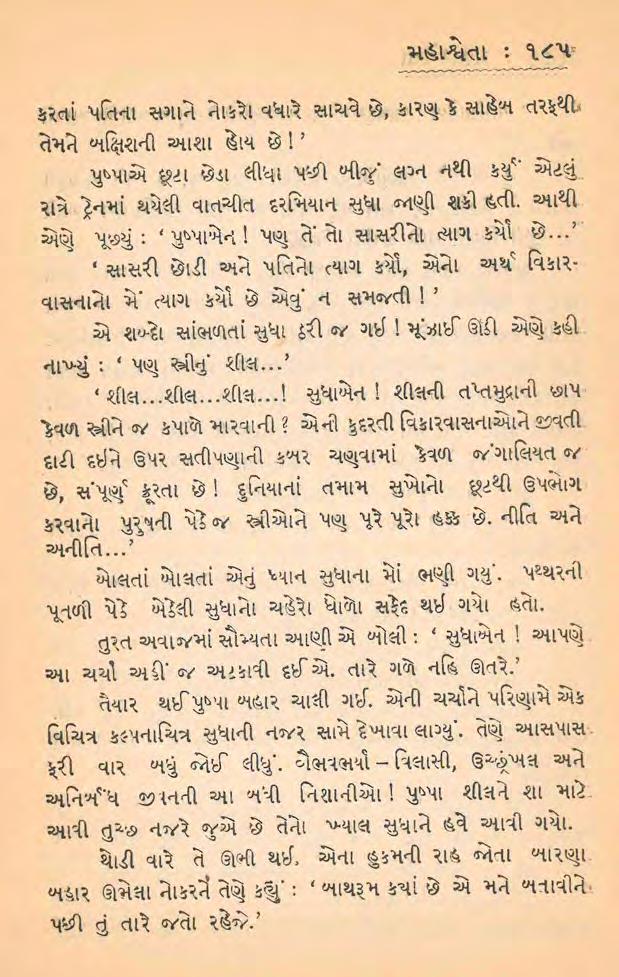 મહાશ્વેતા : ૧૮૫
કરતાં પતિના સગાને નોકરો વધારે સાચવે છે, કારણ કે સાહેબ તરફથી
તેમને બક્ષિશની આશા હોય છે!’
પુષ્પાએ છૂટા છેડા લીધા પછી બીજું લગ્ન નથી કર્યું એટલું
રાત્રે ટ્રેનમાં થયેલી વાતચીત દરમિયાન સુધા જાણી શકી હતી. આથી
એણે પૂછ્યું : ‘પુષ્પાબેન! પણ તેં તો સાસરીનો ત્યાગ કર્યો છે...’
‘સાસરી છોડી અને પતિનો ત્યાગ કર્યો, એનો અર્થ વિકાર-
વાસનાનો મેં ત્યાગ કર્યો છે એવું ન સમજતી!’
એ શબ્દો સાંભળતાં સુધા ઠરી જ ગઈ! મૂંઝાઈ ઊઠી એણે કહી
નાખ્યું : ‘પણ સ્ત્રીનું શીલ...’
‘શીલ...શીલ...શીલ...! સુધાબેન! શીલની તપ્તમુદ્રાની છાપ
કેવળ સ્ત્રીને જ કપાળે મારવાની? એની કુદરતી વિકારવાસનાઓને જીવતી
દાટી દઈને ઉપર સતીપણાની કબર ચણવામાં કેવળ જંગાલિયત જ
છે, સંપૂર્ણ ક્રૂરતા છે! દુનિયાનાં તમામ સુખોનો છૂટથી ઉપભોગ
કરવાનો પુરુષની પેઠે જ સ્ત્રીઓને પણ પૂરેપૂરો હક્ક છે. નીતિ અને
અનીતિ...’
બોલતાં બોલતાં એનું ધ્યાન સુધાના મોં ભણી ગયું. પથ્થરની
પૂતળી પેઠે બેઠેલી સુધાનો ચહેરો ધોળો સફેદ થઈ ગયો હતો.
તુરત અવાજમાં સૌમ્યતા આણી એ બોલી : ‘સુધાબેન! આપણે
આ ચર્ચા અહીં જ અટકાવી દઈએ. તારે ગળે નહિ ઊતરે.’
તૈયાર થઈ પુષ્પા બહાર ચાલી ગઈ. એની ચર્ચાને પરિણામે એક
વિચિત્ર કલ્પનાચિત્ર સુધાની નજર સામે દેખાવા લાગ્યું. તેણે આસપાસ
ફરી વાર બધું જોઈ લીધું. વૈભવભર્યા – વિલાસી, ઉચ્છૃંખલ અને
અનિર્બંધ જીવનની આ બધી નિશાનીઓ! પુષ્પા શીલને શા માટે
આવી તુચ્છ નજરે જુએ છે તેનો ખ્યાલ સુધાને હવે આવી ગયો.
થોડી વારે તે ઊભી થઈ. એના હુકમની રાહ જોતા બારણા
બહાર ઊભેલા નોકરને તેણે કહ્યું : ‘બાથરૂમ ક્યાં છે એ મને બતાવીને
પછી તું તારે જતો રહેજે.’